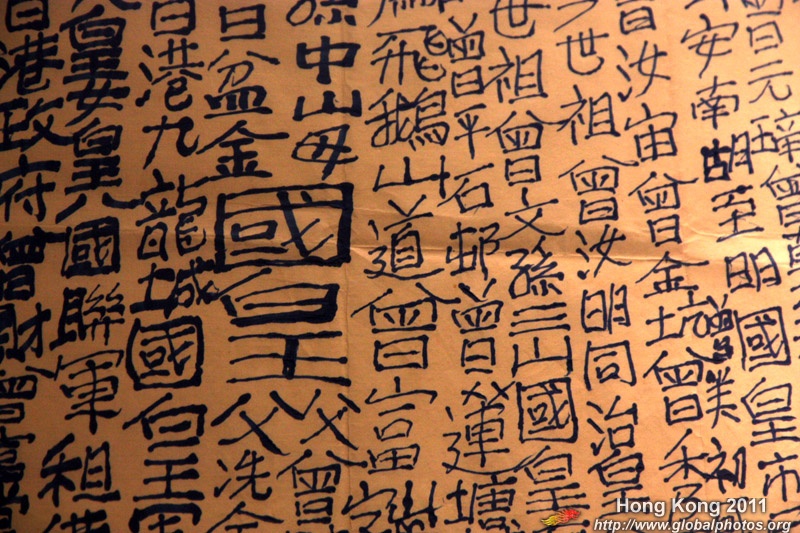 曾元
安南胡至明國皇市
曾汝宙曾金坑曾
世祖曾汝明同治皇
世祖曾文孫三山國皇
曾平石邨曾蓮塘
飛鵝山道曾富
孫中山毋
父曾
日盆金國皇父冼金
日港九龍城國皇
皇女皇八國聯軍租
港政府曾財曾
Hong Kong 2011
http://www.globalphotos.org